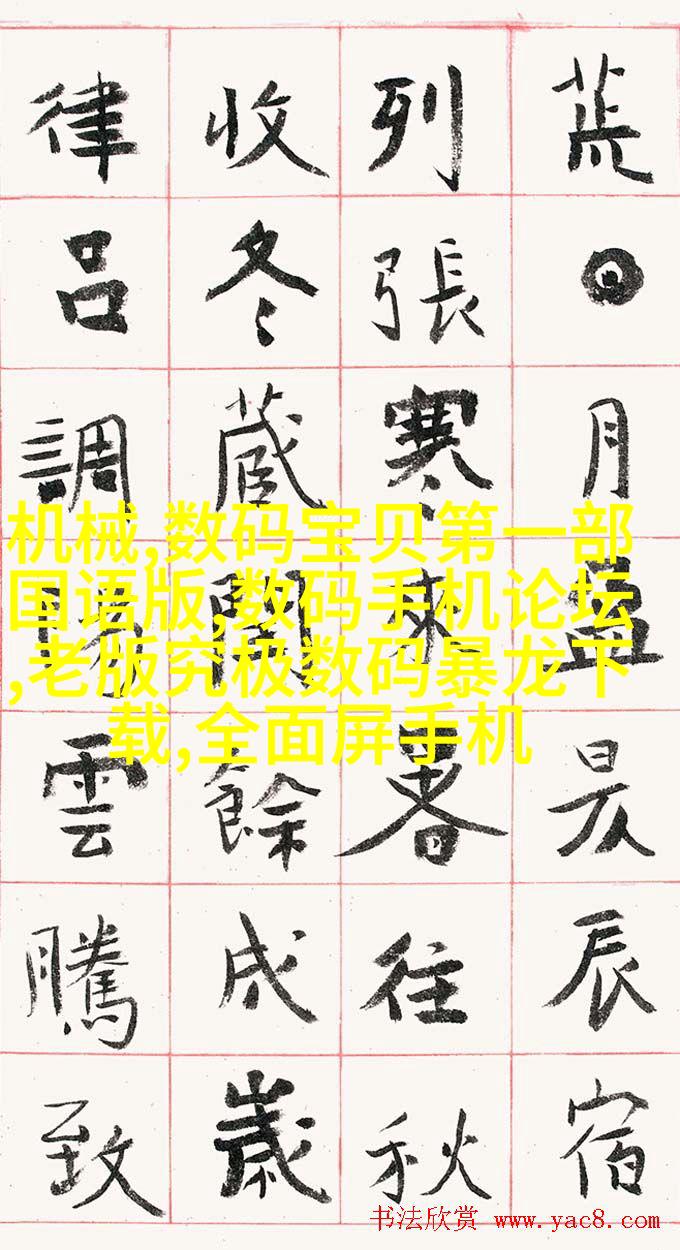 荒日月盈昃辰宿
列張寒來暑往秋
收冬藏閏餘成歲
律呂調陽雲騰致
机械,数码宝贝第一部
国语版,数码手机论坛
,老版究极数码暴龙下
载,全面屏手机
书法欣赏 www.yac8.com